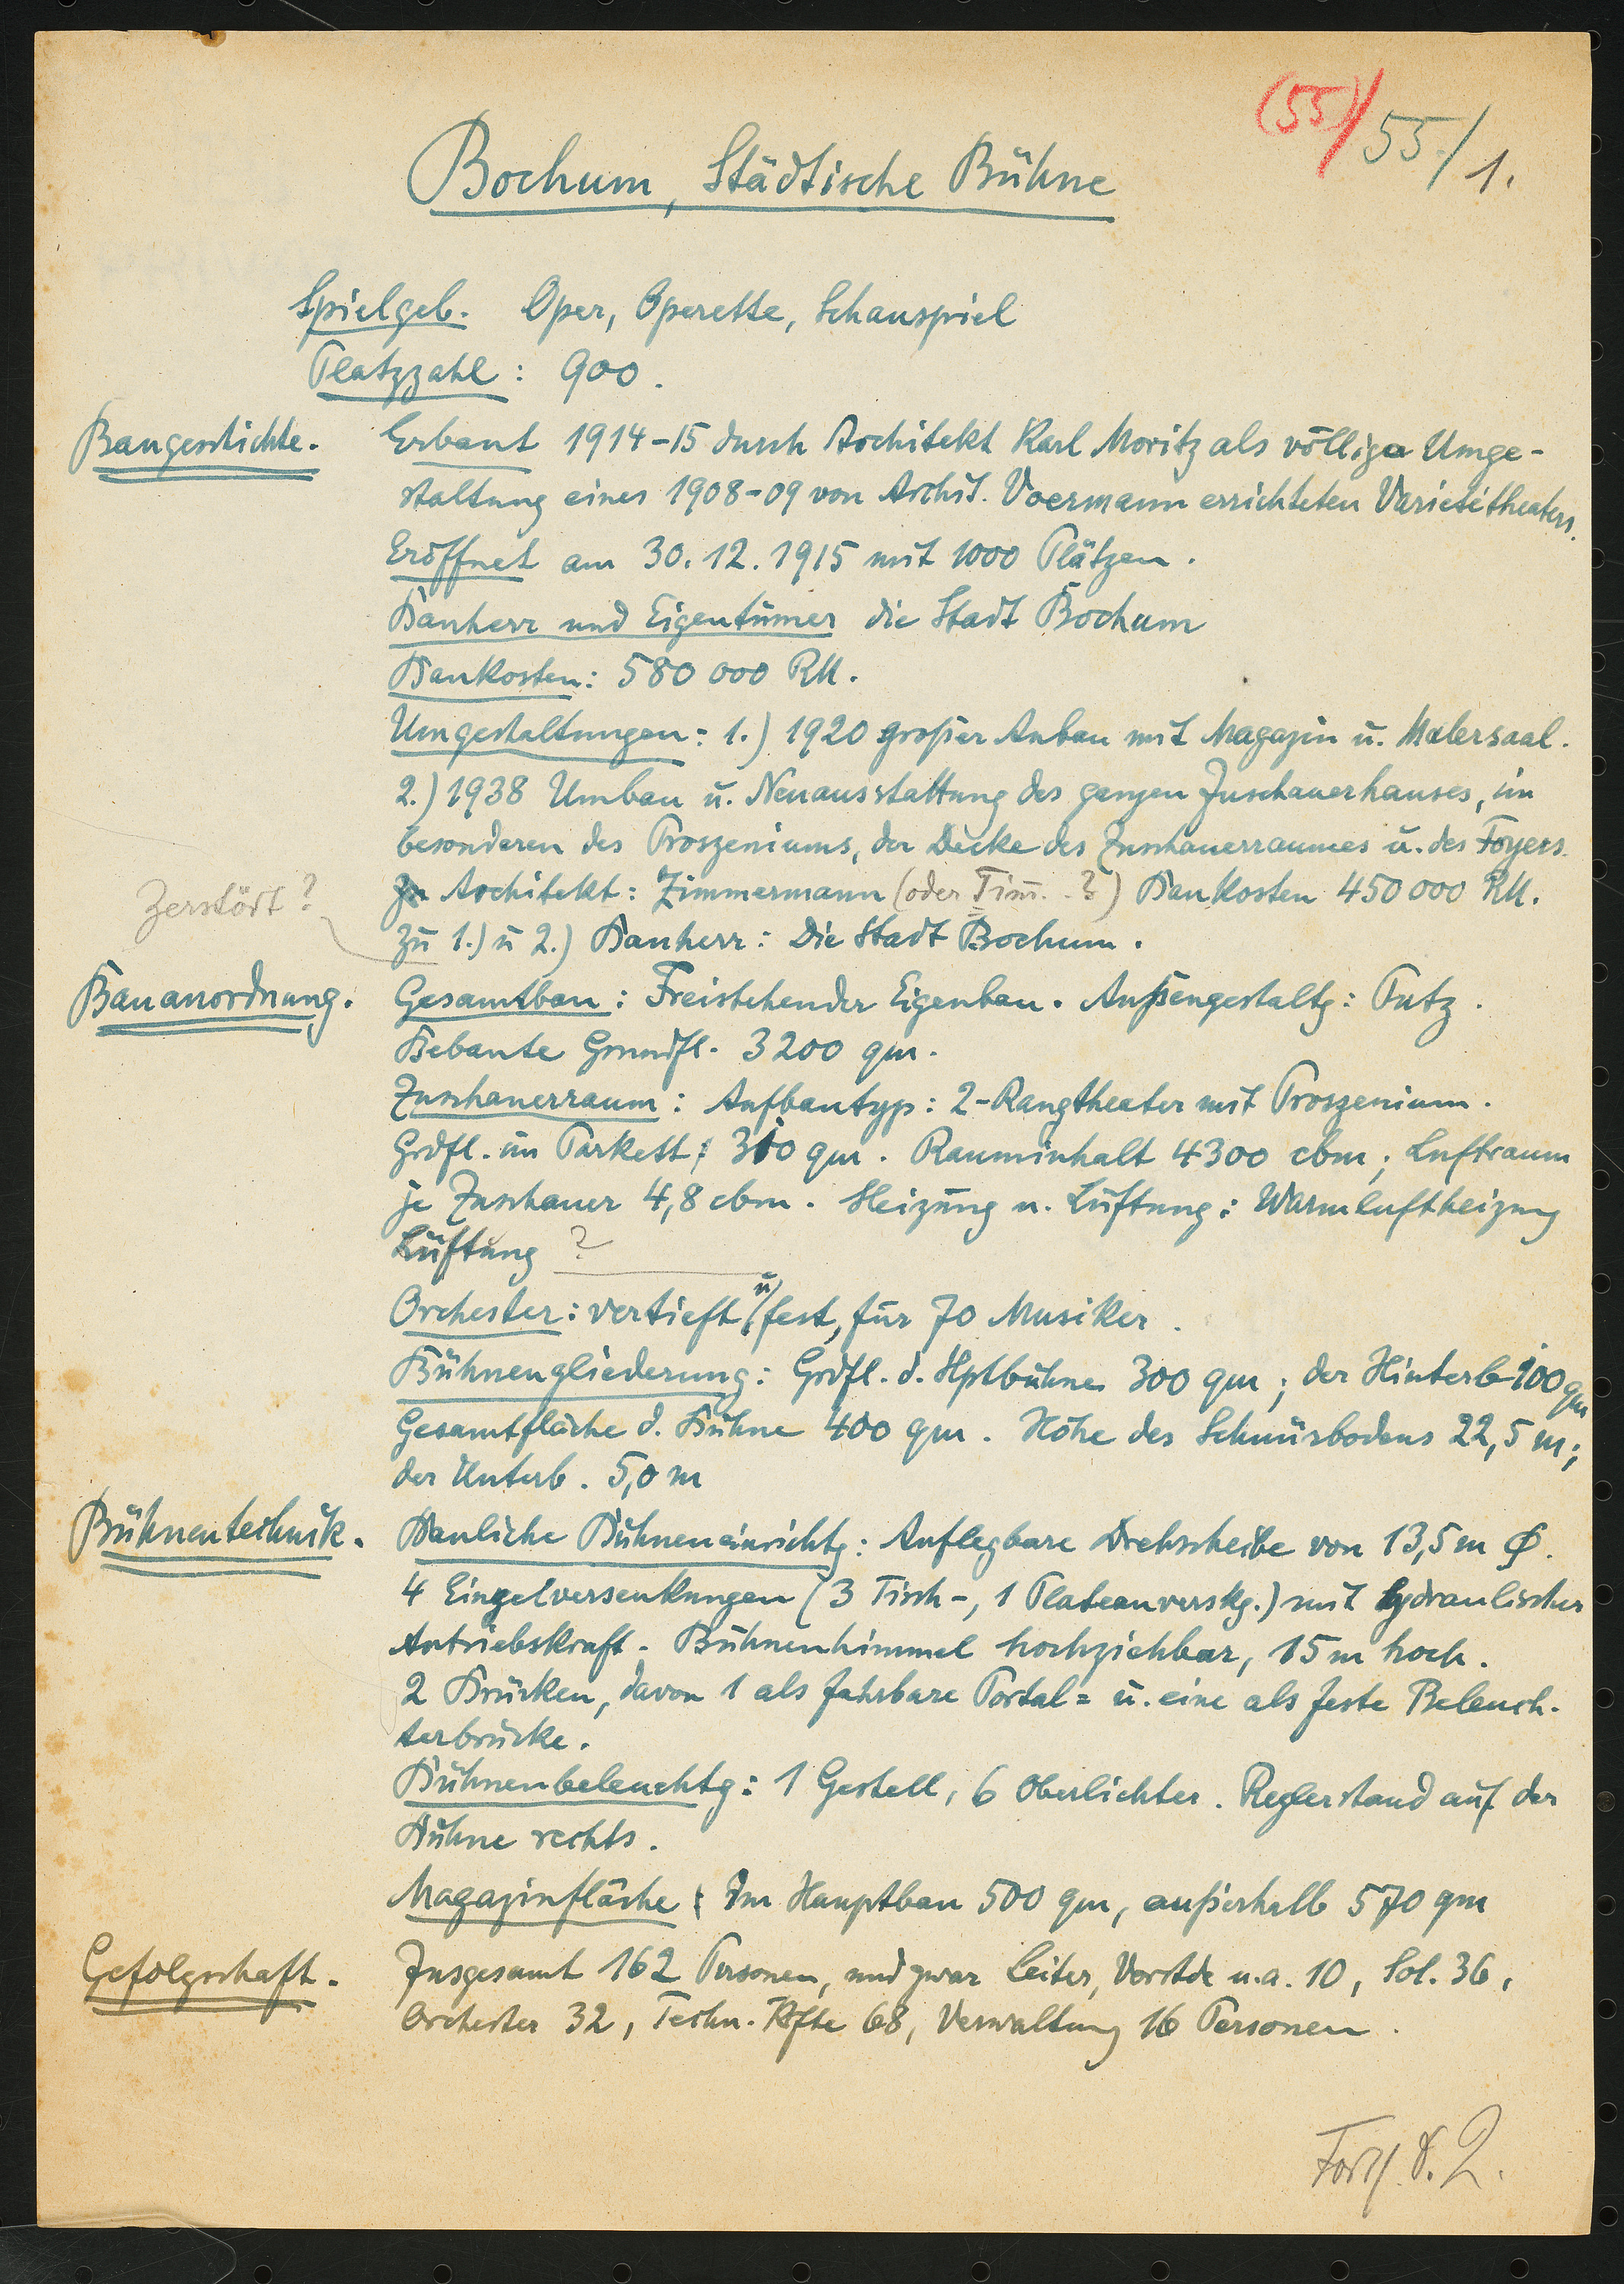 (55)/ 55/1.
Bochum, Städtische Bühne
Spielgeb. Oper, Operette, Schauspiel
Platzzahl: 900.
Baugeschichte. Erbaut 1914-15 durch Architekt Karl Moritz als völlige Umge-
staltung eines 1908-09 von Archit. Voermann errichteten Varietétheaters.
Eröffnet am 30.12.1915 mit 1000 Plätzen.
Bauherr und Eigentümer die Stadt Bochum
Baukosten: 580 000 RM.
Umgestaltungen: 1.) 1920 großer Anbau mit Magazin u. Malersaal.
2.) 1938 Umbau u. Neuausstattung des ganzen Zuschauerhauses, im
besonderen des Proszeniums, der Decke des Zuschauerraumes u. des Foyers.
Zerstört? Architekt: Zimmermann (oder Timm..?) Baukosten 450 000 RM.
Zu 1.) u 2.) Bauherr: Die Stadt Bochum.
Bauanordnung. Gesamtbau: Freistehender Eigenbau. Außengestaltg: Putz.
Bebaute Grundfl. 3200 qm.
Zuschauerraum: Aufbautyp: 2-Rangtheater mit Proszenium.
Grdfl. im Parkett: 310 qm. Rauminhalt 4300 cbm; Luftraum
je Zuschauer 4,8 cbm. Heizung u. Lüftung: Warmluftheizung
Lüftung ?
Orchester: vertieft u fest, für 70 Musiker.
Bühnengliederung: Grdfl. d. Hptbühne 300 qm; der Hinterb 100 qm
Gesamtfläche d. Bühne 400 qm. Höhe des Schnürbodens 22,5 m;
der Unterb. 5,0 m
Bühnentechnik. Bauliche Bühneneinrichtg: Auflegbare Drehscheibe von 13,5 m Ø.
4 Einzelversenkungen (3 Tisch-, 1 Plateauverskg.) mit hydraulischer
Antriebskraft. Bühnenhimmel hochziehbar, 15 m hoch.
2 Brücken, davon 1 als fahrbare Portal= u. eine als feste Beleuch-
terbrücke.
Bühnenbeleuchtg: 1 Gestell, 6 Oberlichter. Reglerstand auf der
Bühne rechts.
Magazinfläche: Im Hauptbau 500 qm, außerhalb 570 qm
Gefolgschaft. Insgesamt 162 Personen, und zwar Leiter, Vorstde u.a. 10, Sol. 36,
Orchester 32, Techn. Kfte 68, Verwaltung 16 Personen.
Forts. S. 2.